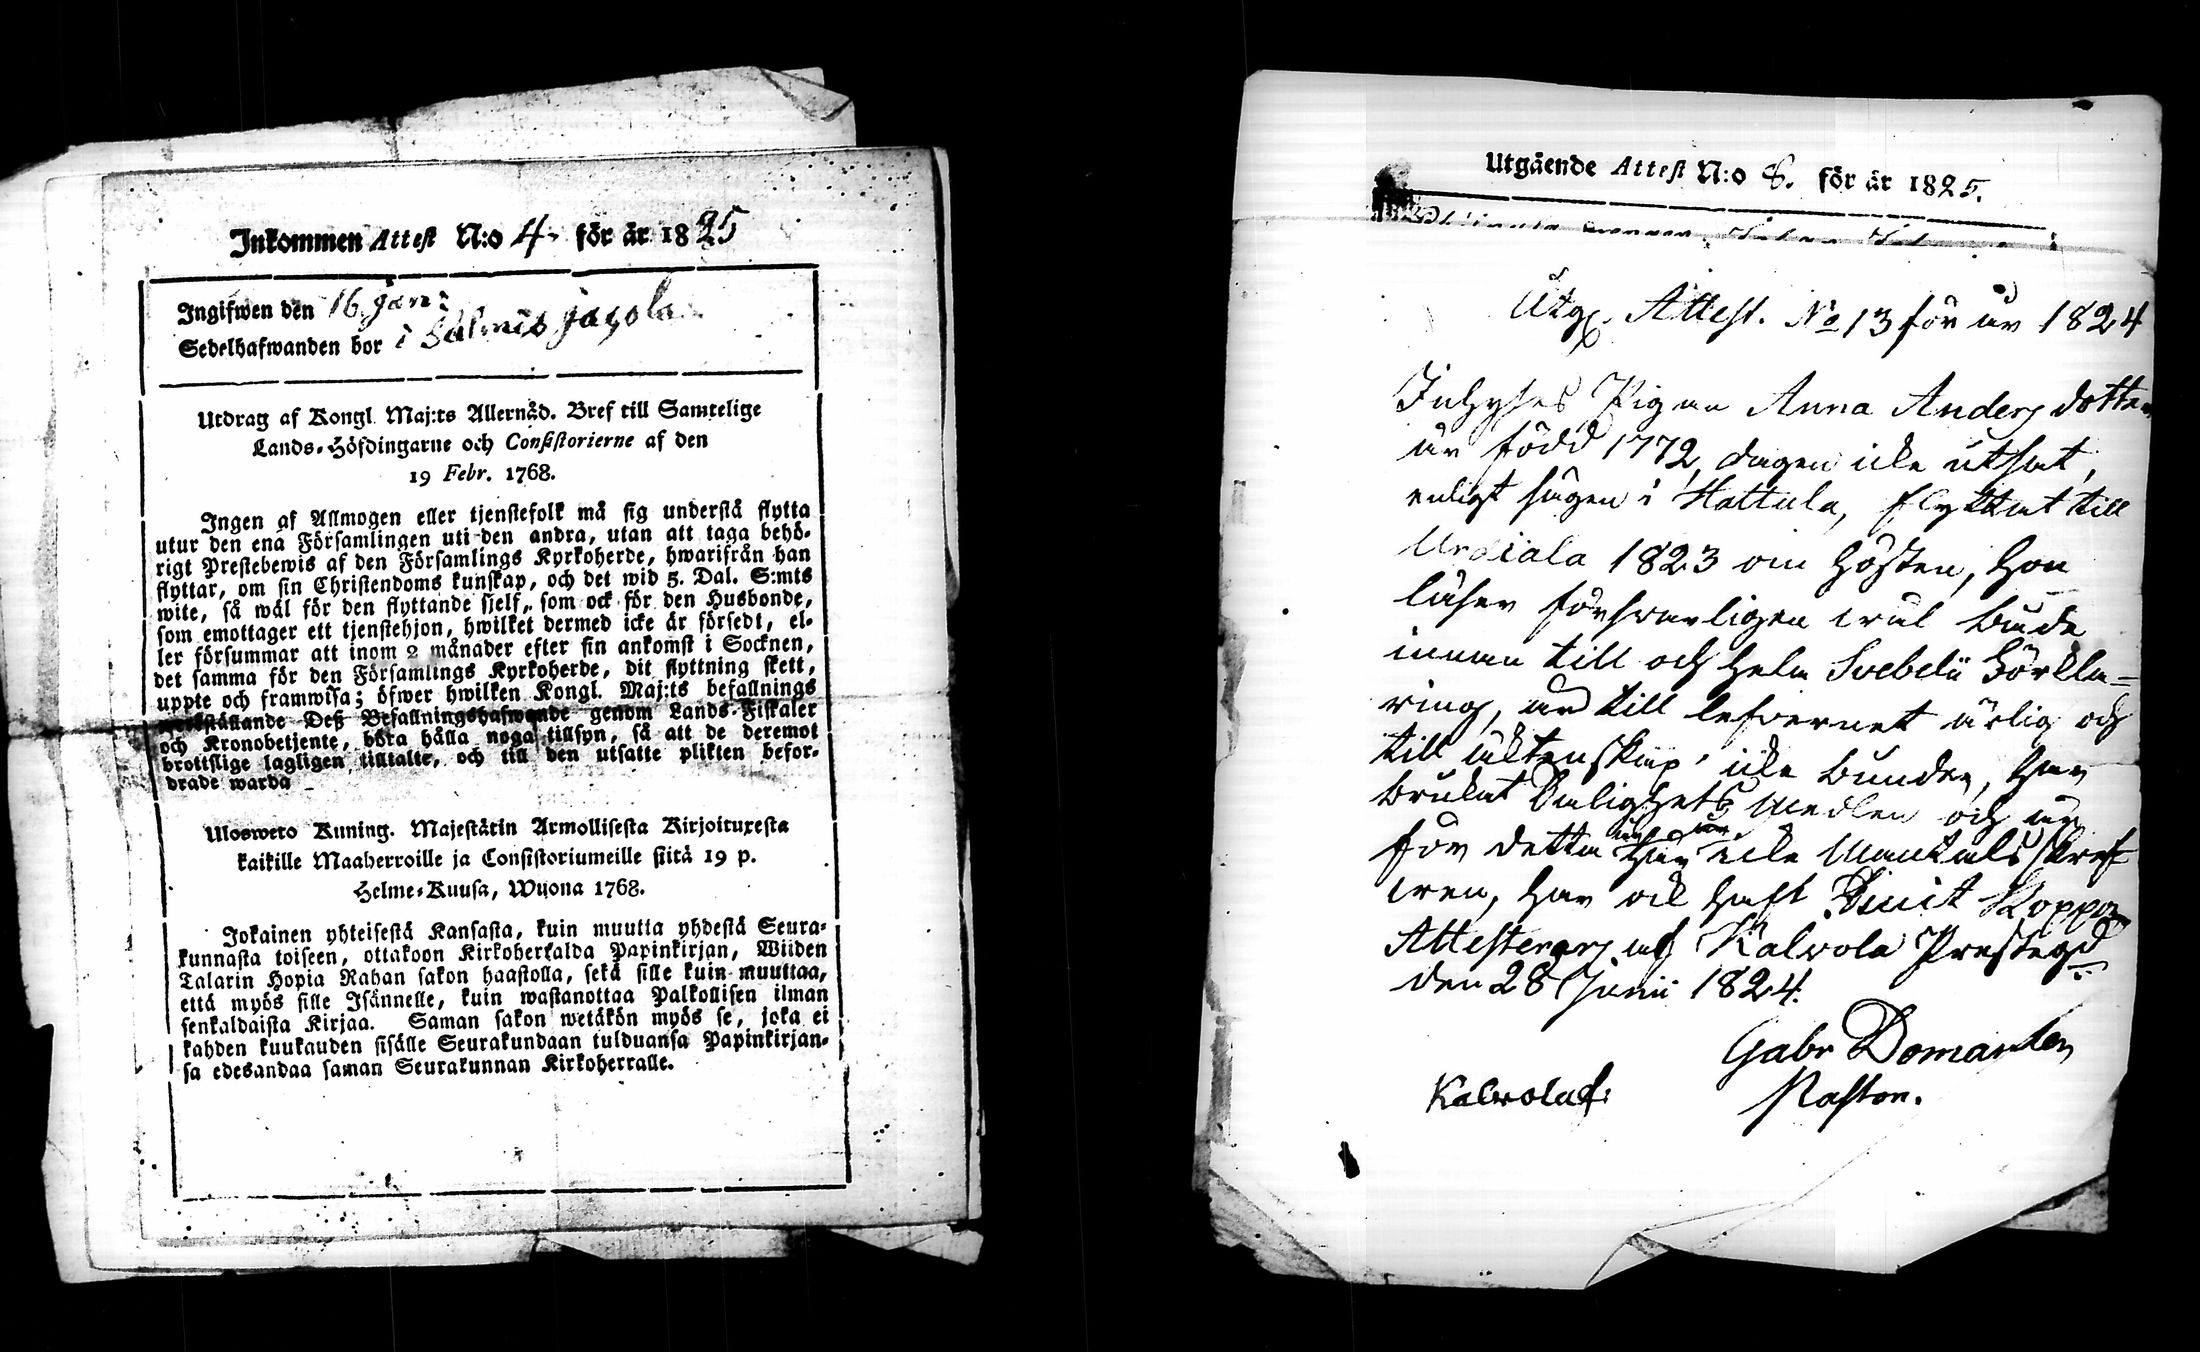 Inkommen Attest N:o 4. för år 1825
Ingifwen den 16 Jan:
Sedelhafwanden bor i Salmis jagola
Utdrag af Kongl. Maj:ts Allernåd. Bref till Samtelige
Lands-Höfdingarne och Consistorierne af den
19 Febr. 1768.
Ingen af Allmogen eller tjenstefolk må sig understå flytta
utur den ena Församlingen uti den andra, utan att taga behö-
rigt Prestebewis af den Församlings Kyrkoherde, hwarifrån han
flyttar, om sin Christendoms kunskap, och det wid 5. Dal. S:mts
wite, så wäl för den flyttande sjelf, som ock för den Husbonde,
som emottager ett tjenstehjon, hwilket dermed icke är försedt, el-
ler försummar att inom 2 månader efter sin ankomst i Socknen,
det samma för den Församlings Kyrkoherde, dit flyttning skett,
uppte och framwisa; öfwer hwilken Kongl. Maj:ts befallnings
werkställande Deß Befallningshafwande genom Lands-Fiskaler
och Kronobetjente, böra hålla noga tillsyn, så att de deremot
brottslige lagligen tilltalte, och till den utsatte plikten befor-
drade warda
Uloswero Kuning. Majestätin Armollisesta Kirjoituxesta
kaikille Maaherroille ja Consistoriumeille siitä 19 p.
Helme-Kuusa, Wuona 1768.
Jokainen yhteisestä Kansasta, kuin muutta yhdestä Seura-
kunnasta toiseen, ottakoon Kirkoherralda Papinkirjan, Wiiden
Talarin Hopia Rahan sakon haastolla, sekä sille kuin muuttaa,
että myös sille Isännelle, kuin wastanottaa Palkollisen ilman
senkaldaista Kirjaa. Saman sakon wetäkön myös se, joka ei
kahden kuukauden sisälle Seurakundaan tulduansa Papinkirjan-
sa edesandaa saman Seurakunnan Kirkoherralle.
Utgående Attest N:o 8. för år 1825.
Utg. Attest. No 13 för år 1824
Inhyses Pigan Anna Andersdotter
är född 1772, dagen icke utsat,
enligt sägen i Hattula, flyttat till
Urdiala 1823 om hösten, hon
läser försvarligen wäl både
innan till och hela Svebelii Förkla=
ring, är till lefvernet ärlig och
till äktenskap icke bunden, har
brukat Salighets Medlen och är
för detta här icke Mantalsskref
wen, har ock haft Skoppor
Attesteras af Kalvola Prestegd
den 28 Junii 1824.
Gabr Domander
Pastor.
Kalvola